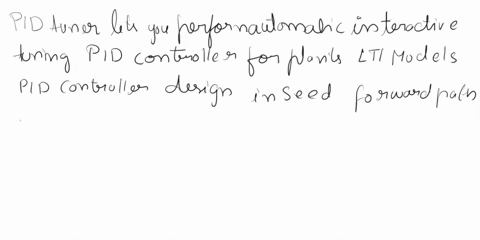 PID tuner lets you perform automatic interactive
tuning PID controller for plants LTI Models
PID Controller design in seed forward path